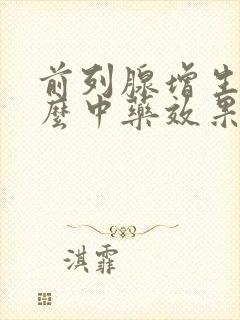 前列腺增生
麽中藥效果
淇霏